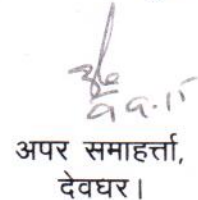 अपर समाहर्त्ता,
देवघर।